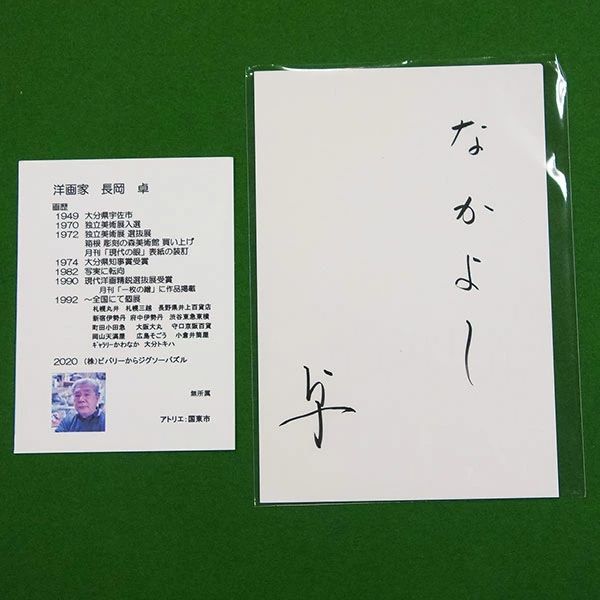 洋画家 長岡 卓
画歴
1949 大分県宇佐市
1970 独立美術展入選
1972 独立美術展 選抜展
箱根 彫刻の森美術館 買い上げ
月刊「現代の眼」表紙の装訂
1974 大分県知事賞受賞
1982 写実に転向
1990 現代洋画精鋭選抜展受賞
月刊「一枚の繪」に作品掲載
1992 ～全国にて個展
札幌丸井 札幌三越 長野県井上百貨店
新宿伊勢丹 府中伊勢丹 渋谷東急東横
町田小田急 大阪大丸 守口京阪百貨
岡山天満屋 広島そごう 小倉井筒屋
ギャラリーかわなか 大分トキハ
2020 (株)ビバリーからジグソーパズル
無所属
アトリエ:国東市
なかよし
卓